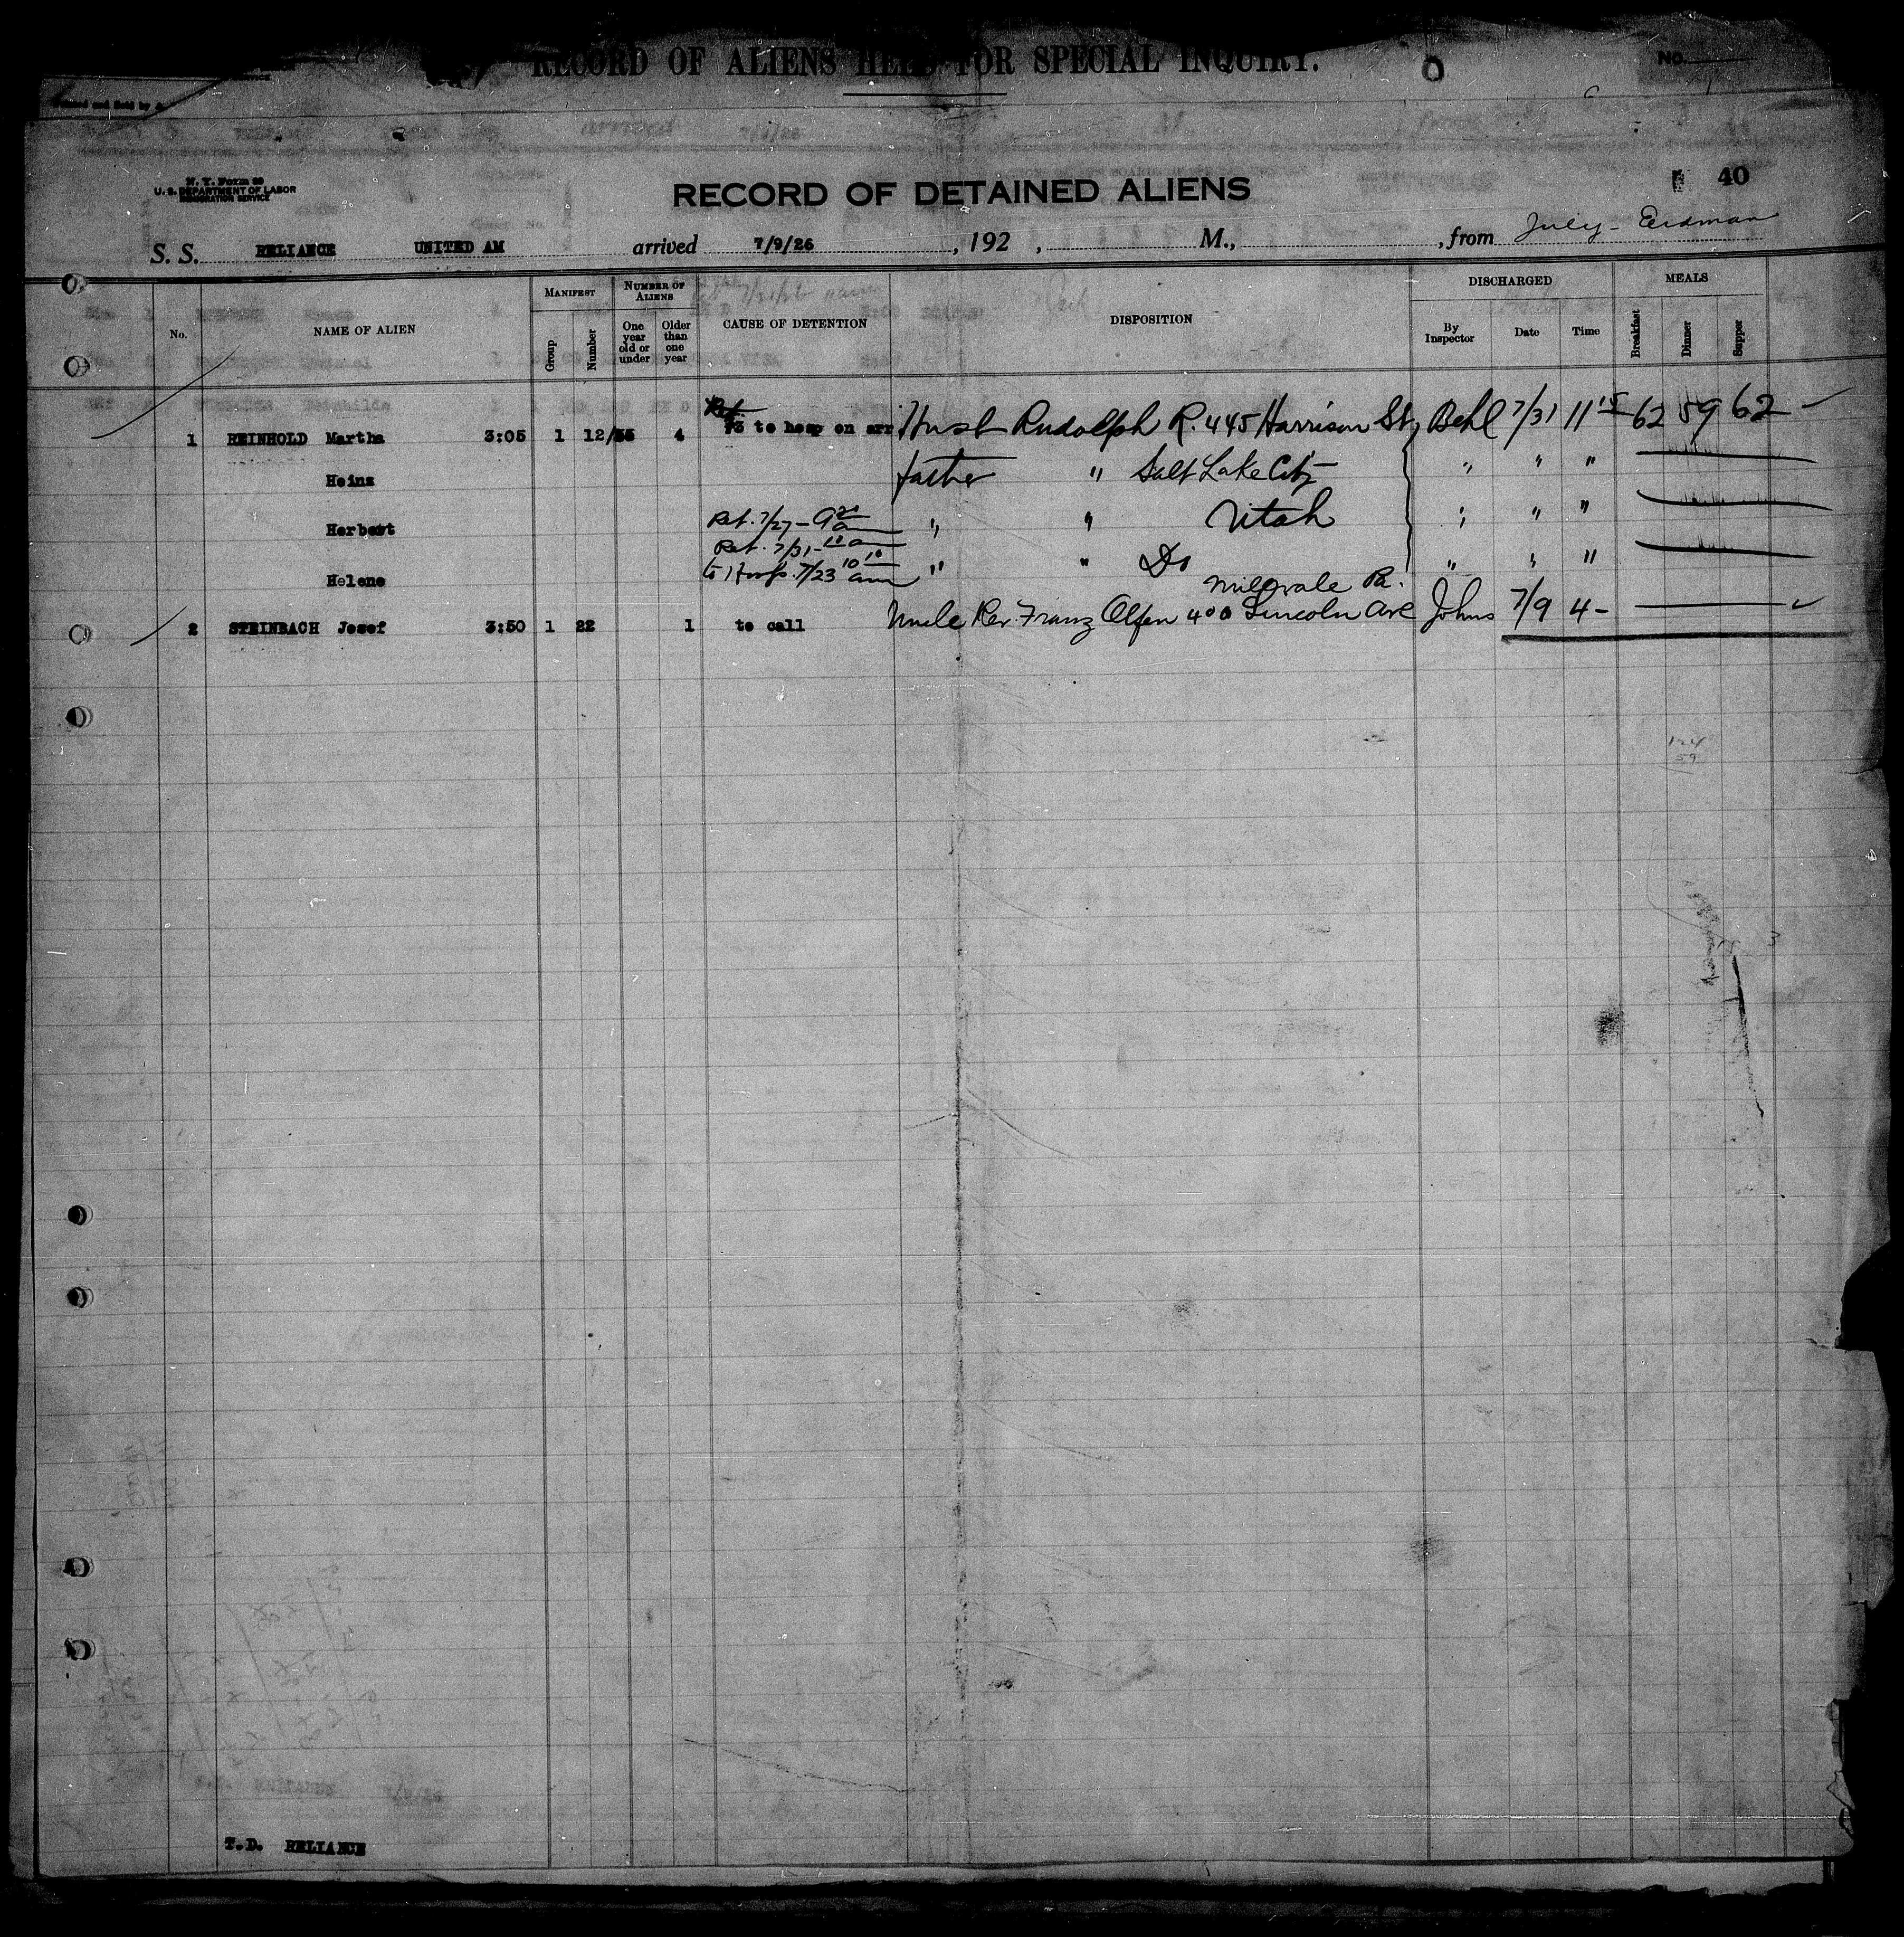 RECORD OF ALIENS HELD FOR SPECIAL INQUIRY.
No.
N. Y. Form 99
U. S. DEPARTMENT OF LABOR
IMMIGRATION SERVICE
RECORD OF DETAINED ALIENS
40
S. S. RELIANCE UNITED AM arrived 7/9/26, 192 , M., , from July - Erdman
No. NAME OF ALIEN MANIFEST Group Number NUMBER OF ALIENS One year old or under Older than one year CAUSE OF DETENTION DISPOSITION DISCHARGED By Inspector Date Time MEALS Breakfast Dinner Supper
1 REINHOLD Martha 3:05 1 12/15 4 to hosp on arr Husb Rudolph R. 445 Harrison St, Behl 7/31 11 15 62 59 62
Heinz father " Salt Lake City " " "
Herbert Ret. 7/27 - 9 20 am " " Utah " " "
Ret. 7/31 - 10 a
Helene to Hosp. 7/23 10 10 am " " Do " " "
Millvale Pa.
2 STEINBACH Josef 3:50 1 22 1 to call Uncle Rev. Franz Olfen 400 Lincoln Ave Johns 7/9 4 -
124
59
T.D. RELIANCE